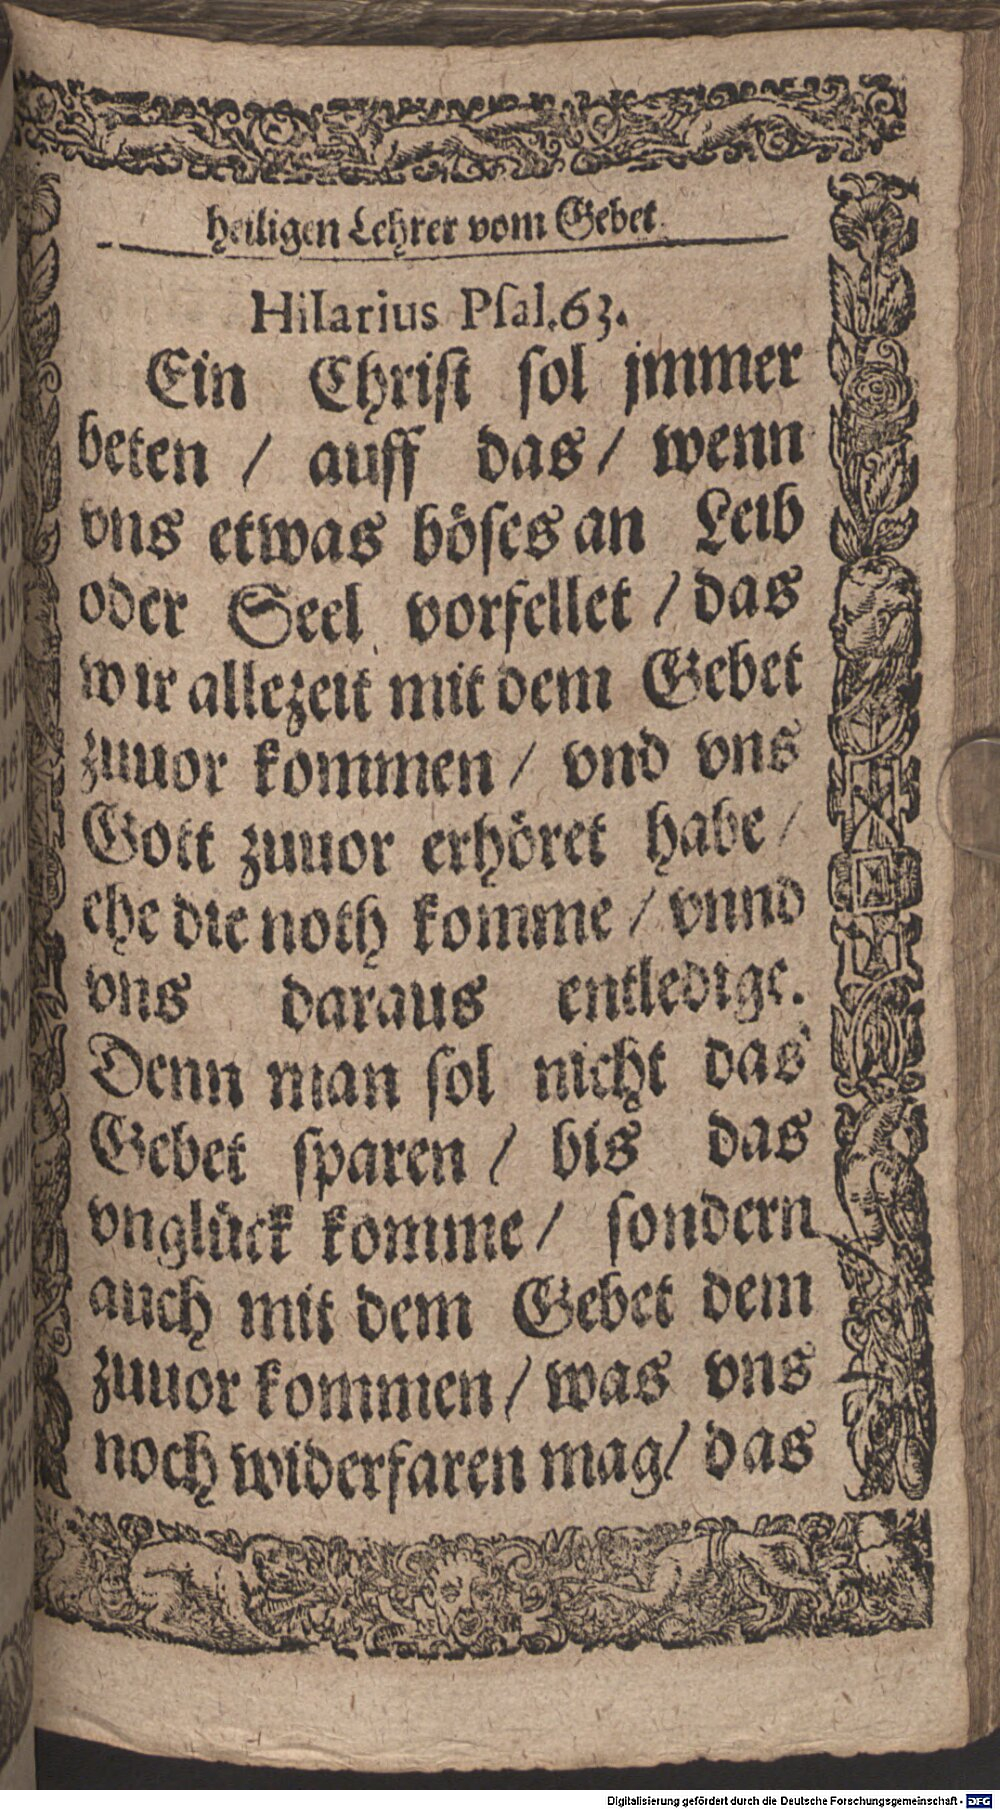 heiligen Lehrer vom Gebet.
Hilarius Psal. 63.
Ein Christ sol jmmer
beten / auff das / wenn
vns etwas böses an Leib
oder Seel vorfellet / das
wir allezeit mit dem Gebet
zuuor kommen / vnd vns
Gott zuuor erhöret habe /
ehe die noth komme / vnnd
vns daraus entledige.
Denn man sol nicht das
Gebet sparen / bis das
vnglück komme / sondern
auch mit dem Gebet dem
zuuor kommen / was vns
noch widerfaren mag / das
Digitalisierung gefördert durch die Deutsche Forschungsgemeinschaft - DFG